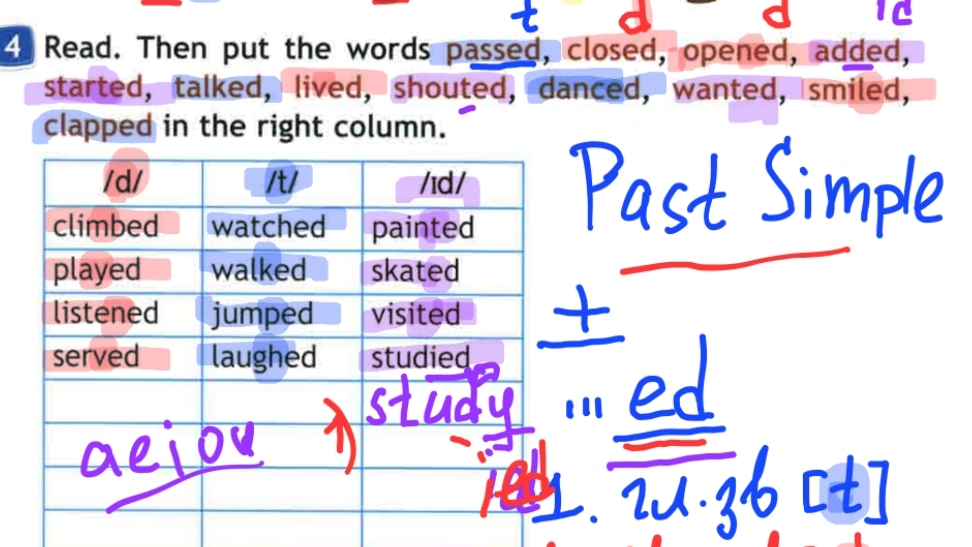 t d d id
4 Read. Then put the words passed, closed, opened, added,
started, talked, lived, shouted, danced, wanted, smiled,
clapped in the right column.
/d/ /t/ /ɪd/
climbed watched painted
played walked skated
listened jumped visited
served laughed studied
Past Simple
+
study
... ed
aeiou
ied
1. гл.зв [t]